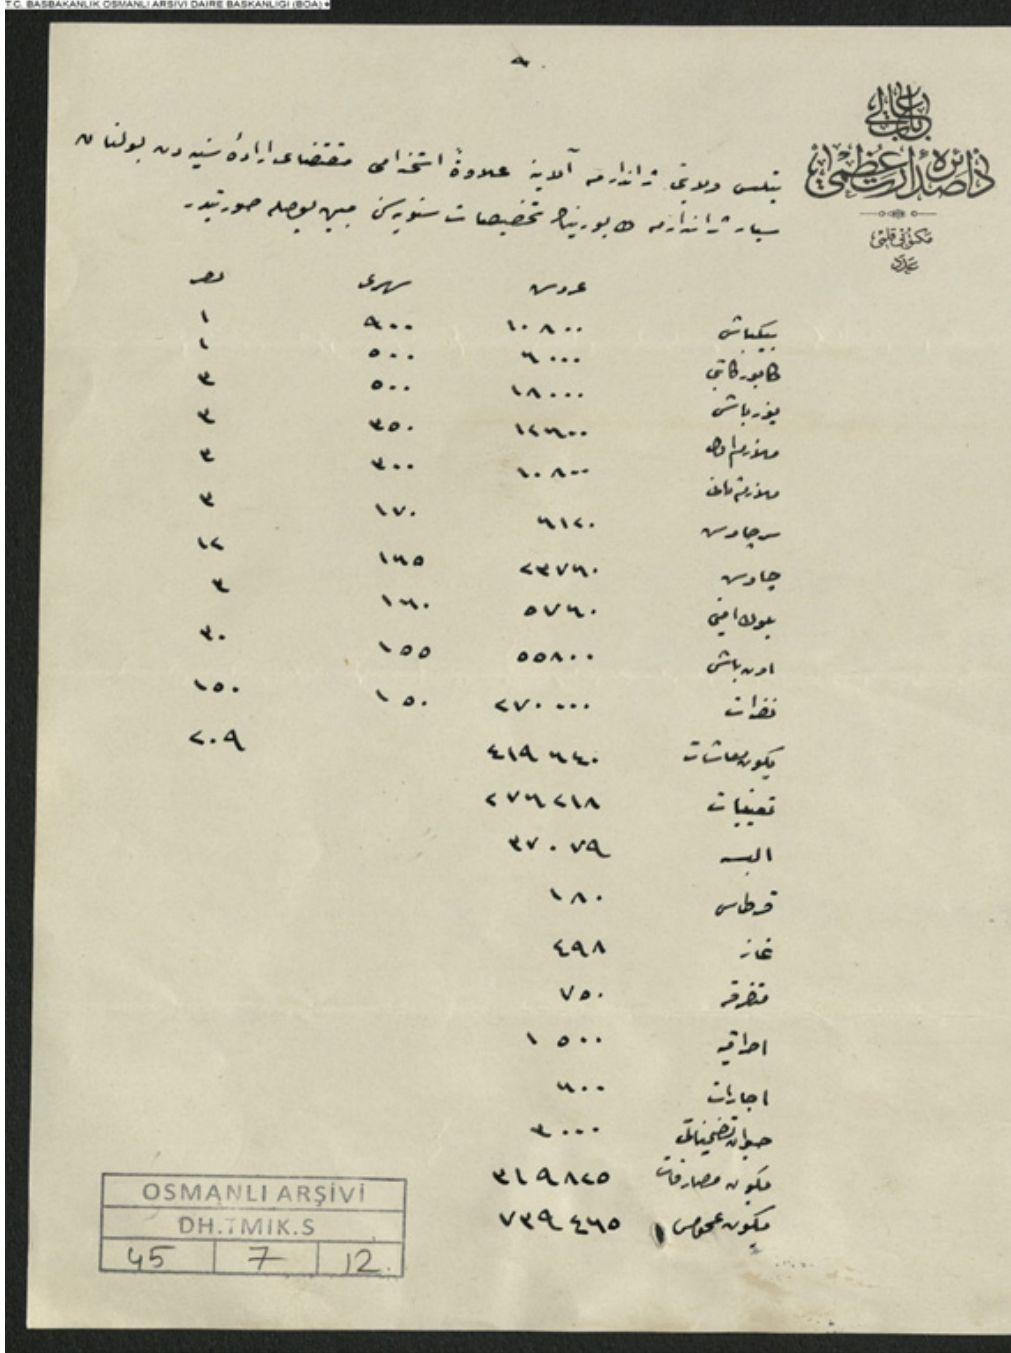 T.C. BASBAKANLIK OSMANLI ARSIVI DAIRE BASKANLIGI (BOA)
باب عالی
دائرهٔ صدارت عظمی
مکتوبی قلمی
عدد
بتلیس ولایتی ژاندارمه آلاینه علاوةً استخدامی مقتضای ارادهٔ سنیه‌دن بولنان
سیار ژاندارمه طابورینك تخصیصات سنویه‌سنی مبین پوصله صورتیدر
غروش شهری نفر
بیکباشی ١٠٨٠٠ ٩٠٠ ١
طابور کاتبی ٦٠٠٠ ٥٠٠ ١
یوزباشی ١٨٠٠٠ ٥٠٠ ٣
ملازم اول ١٢٦٠٠ ٣٥٠ ٣
ملازم ثانی ١٠٨٠٠ ٣٠٠ ٣
سرچاوش ٦١٢٠ ١٧٠ ٣
چاوش ٢٣٧٦٠ ١٦٥ ١٢
بلوك امینی ٥٧٦٠ ١٦٠ ٣
اون باشی ٥٥٨٠٠ ١٥٥ ٣٠
نفرات ٢٧٠٠٠٠ ١٥٠ ١٥٠
یکون معاشات ٤١٩٦٤٠ ٢٠٩
تعیینات ٢٧٦٢١٨
البسه ٣٧٠٧٩
قرطاس ١٨٠
غاز ٤٩٨
متفرقه ٧٥٠
احراقیه ١٥٠٠
ایجارات ٦٠٠
حیوان تضمیناتی ٣٠٠٠
یکون مصارفات ٣١٩٨٢٥
یکون عمومی ٧٣٩٤٦٥
OSMANLI ARŞİVİ
DH.TMIK.S
45 7 12